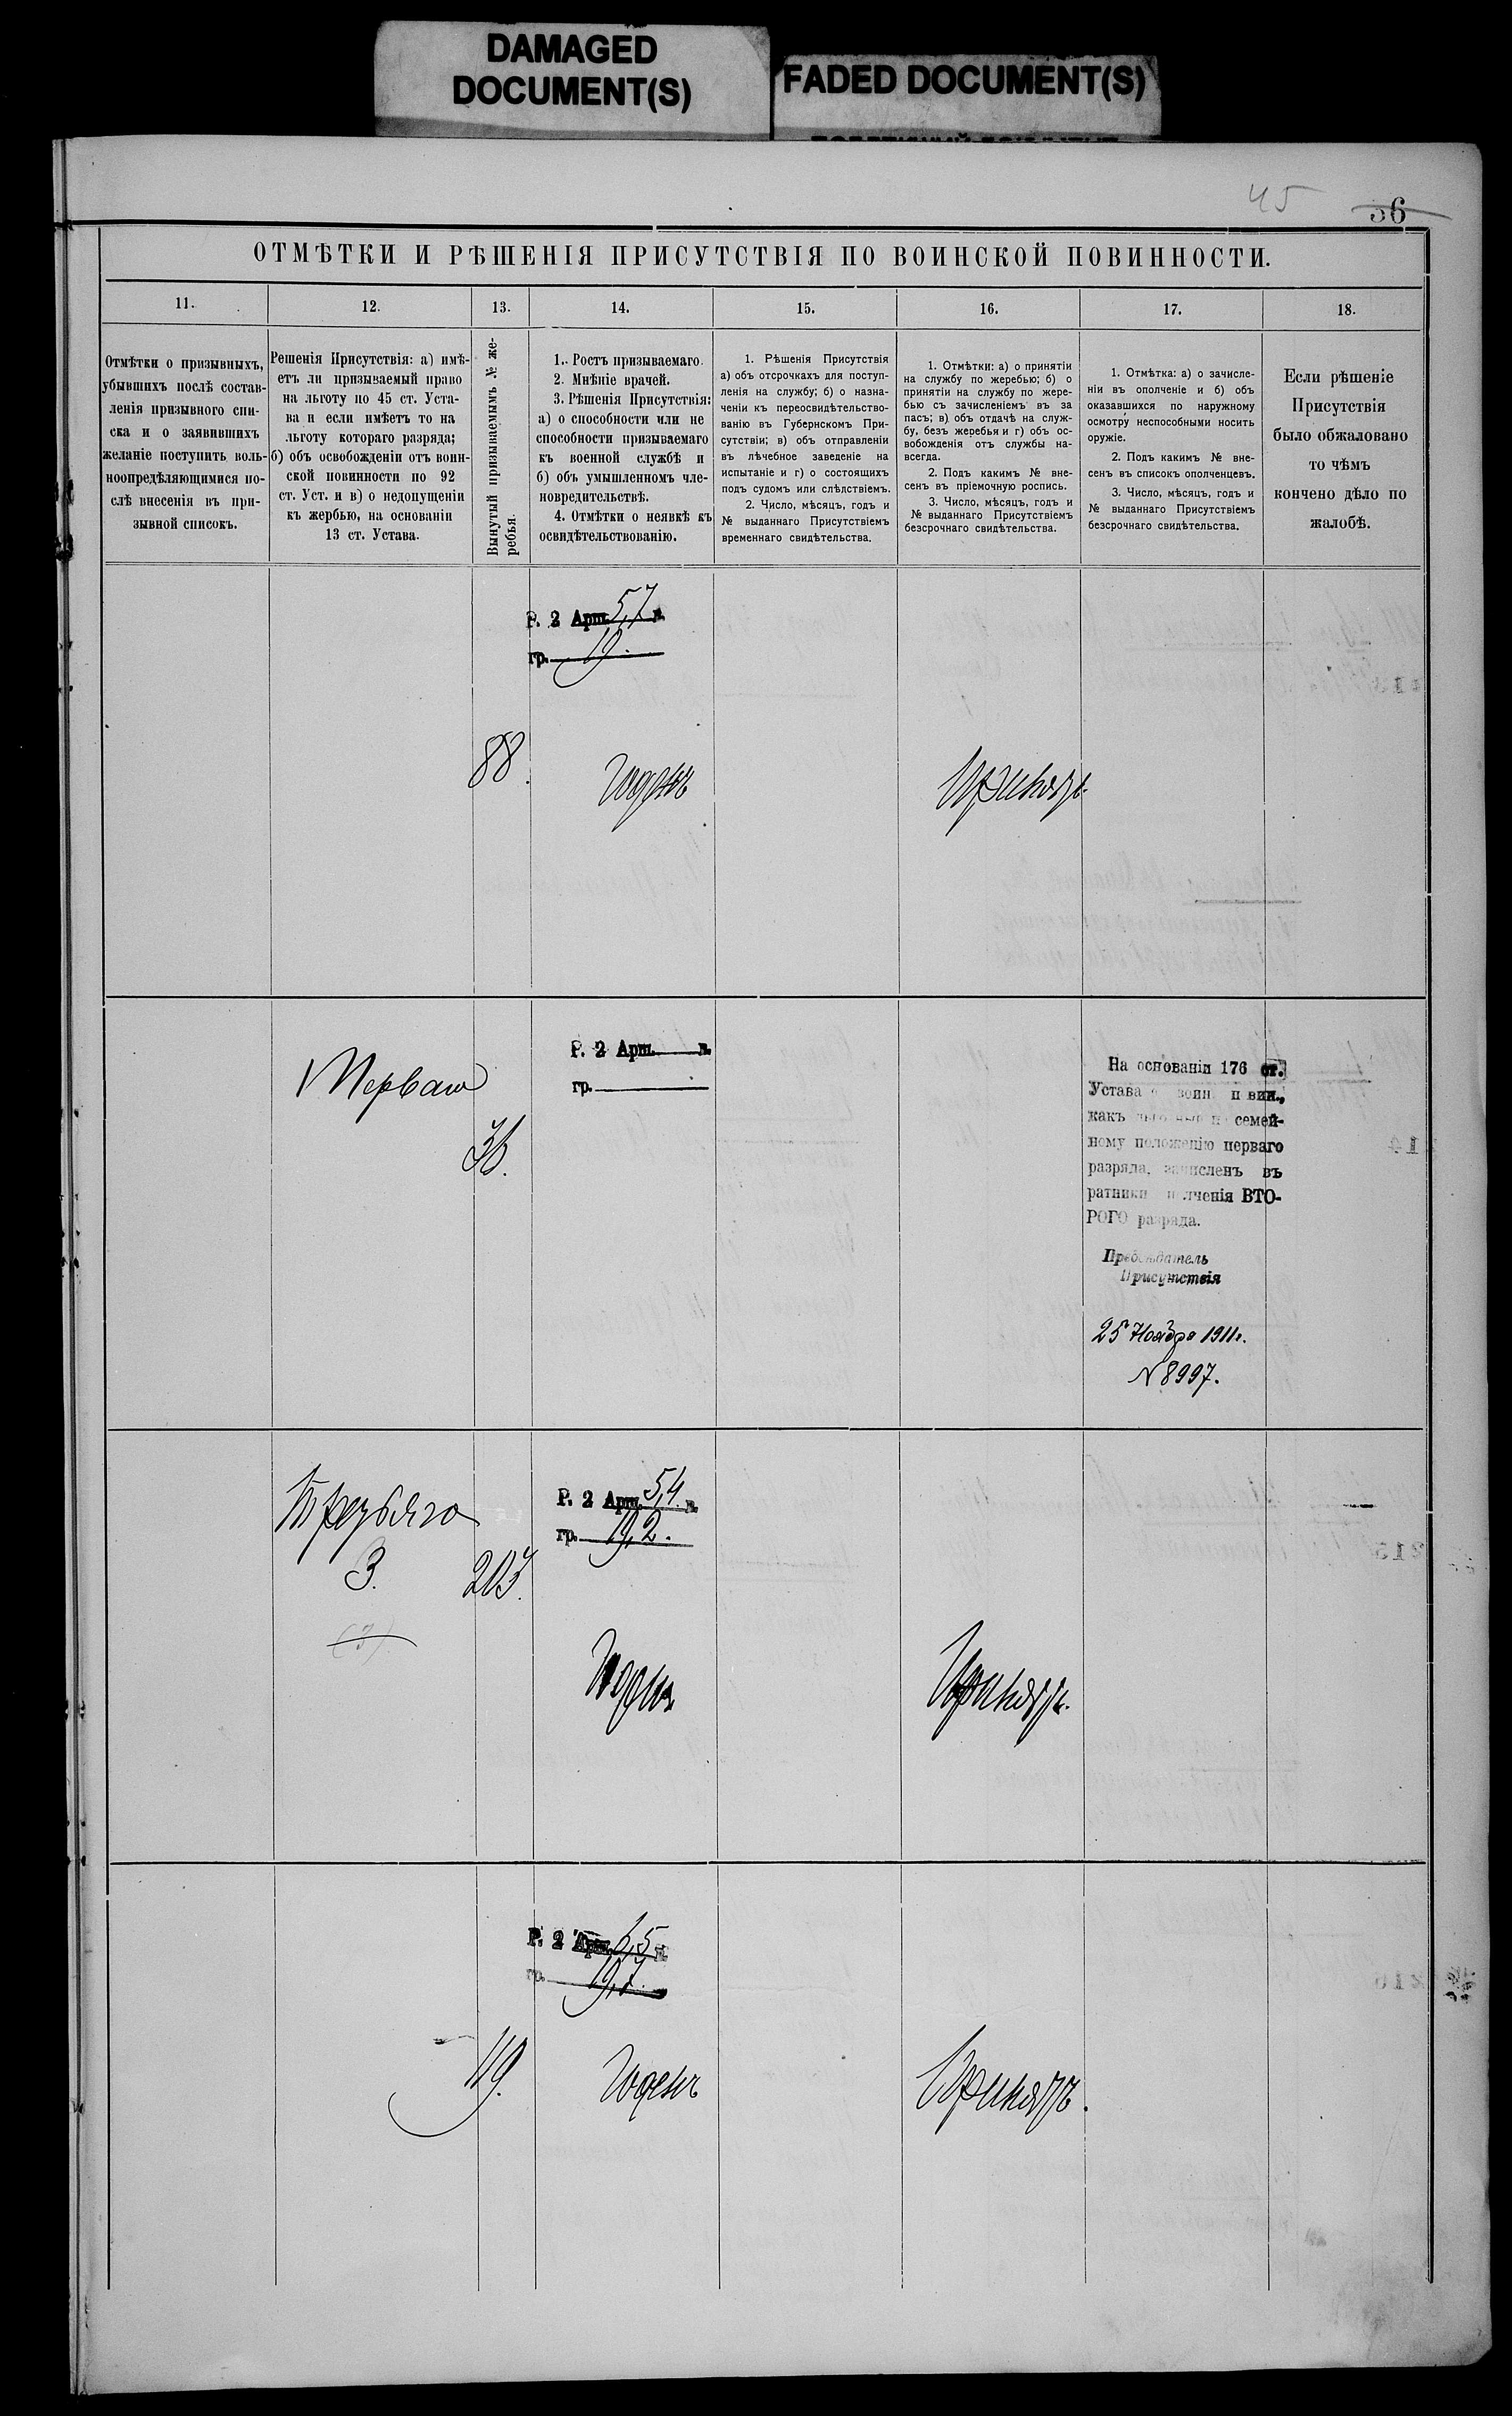 DAMAGED
DOCUMENT(S)
FADED DOCUMENT(S)
45
56
ОТМѢТКИ И РѢШЕНІЯ ПРИСУТСТВІЯ ПО ВОИНСКОЙ ПОВИННОСТИ.
11.
12.
13.
14.
15.
16.
17.
18.
Отмѣтки о призывныхъ,
убывшихъ послѣ состав-
ленія призывного спи-
ска и о заявившихъ
желаніе поступить воль-
ноопредѣляющимися по-
слѣ внесенія въ при-
зывной списокъ.
Рѣшенія Присутствія: а) имѣ-
етъ ли призываемый право
на льготу по 45 ст. Уста-
ва и если имѣетъ то на
льготу котораго разряда;
б) объ освобожденіи отъ воин-
ской повинности по 92
ст. Уст. и в) о недопущеніи
къ жербью, на основаніи
13 ст. Устава.
Вынутый призываемымъ № же-
ребья.
1. Ростъ призываемаго.
2. Мнѣніе врачей.
3. Рѣшенія Присутствія:
а) о способности или не
способности призываемаго
къ военной службѣ и
б) объ умышленномъ чле-
новредительствѣ.
4. Отмѣтки о неявкѣ къ
освидѣтельствованію.
1. Рѣшенія Присутствія
а) объ отсрочкахъ для поступ-
ленія на службу; б) о назна-
ченіи къ переосвидѣтельство-
ванію въ Губернскомъ При-
сутствіи; в) объ отправленіи
въ лѣчебное заведеніе на
испытаніе и г) о состоящихъ
подъ судомъ или слѣдствіемъ.
2. Число, мѣсяцъ, годъ и
№ выданнаго Присутствіемъ
временнаго свидѣтельства.
1. Отмѣтки: а) о принятіи
на службу по жеребью; б) о
принятіи на службу по жере-
бью съ зачисленіемъ въ за
пасъ; в) объ отдачѣ на служ-
бу, безъ жеребья и г) объ ос-
вобожденіи отъ службы на-
всегда.
2. Подъ какимъ № вне-
сенъ въ пріемочную роспись.
3. Число, мѣсяцъ, годъ и
№ выданнаго Присутствіемъ
безсрочнаго свидѣтельства.
1. Отмѣтка: а) о зачисле-
ніи въ ополченіе и б) объ
оказавшихся по наружному
осмотру неспособными носить
оружіе.
2. Подъ какимъ № вне-
сенъ въ списокъ ополченцевъ.
3. Число, мѣсяцъ, годъ и
№ выданнаго Присутствіемъ
безсрочнаго свидѣтельства.
Если рѣшеніе
Присутствія
было обжаловано
то чѣмъ
кончено дѣло по
жалобѣ.
Р. 2 Арш. 5,7 в.
гр. 19.
88.
Годенъ
Принятъ.
Перваго
36.
Р. 2 Арш. в.
гр.
На основаніи 176 ст.
Устава о воин. повин.,
какъ семей-
ному положенію перваго
разряда, зачисленъ въ
ратники ополченія ВТО-
РОГО разряда.
Предсѣдатель
Присутствія
25 Ноября 1911г.
№ 8997.
Третьяго
3.
(3)
207.
Р. 2 Арш. 5,4 в.
гр. 19,2.
Годенъ
Принятъ.
Р. 2 Арш. 6,5 в.
гр. 19,7.
119.
Годенъ
Принятъ.